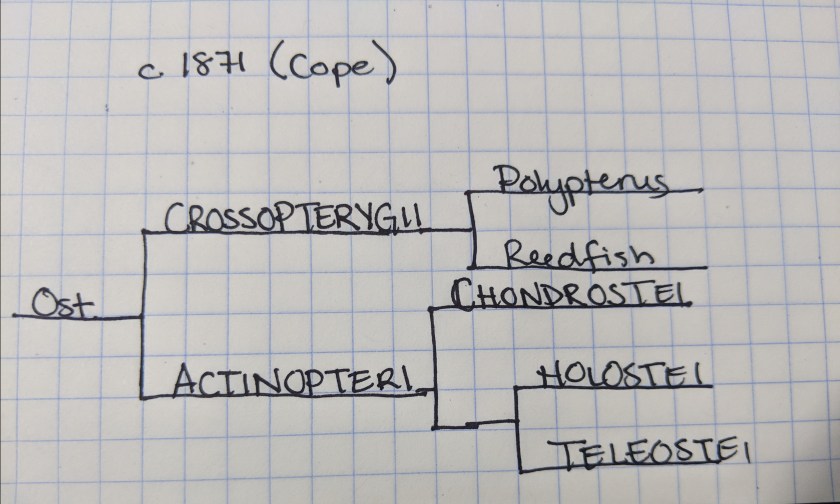 c. 1871 (Cope)
Polypterus
CROSSOPTERYGII
Reedfish
CHONDROSTEI
Ost.
HOLOSTEI
ACTINOPTERI
TELEOSTEI